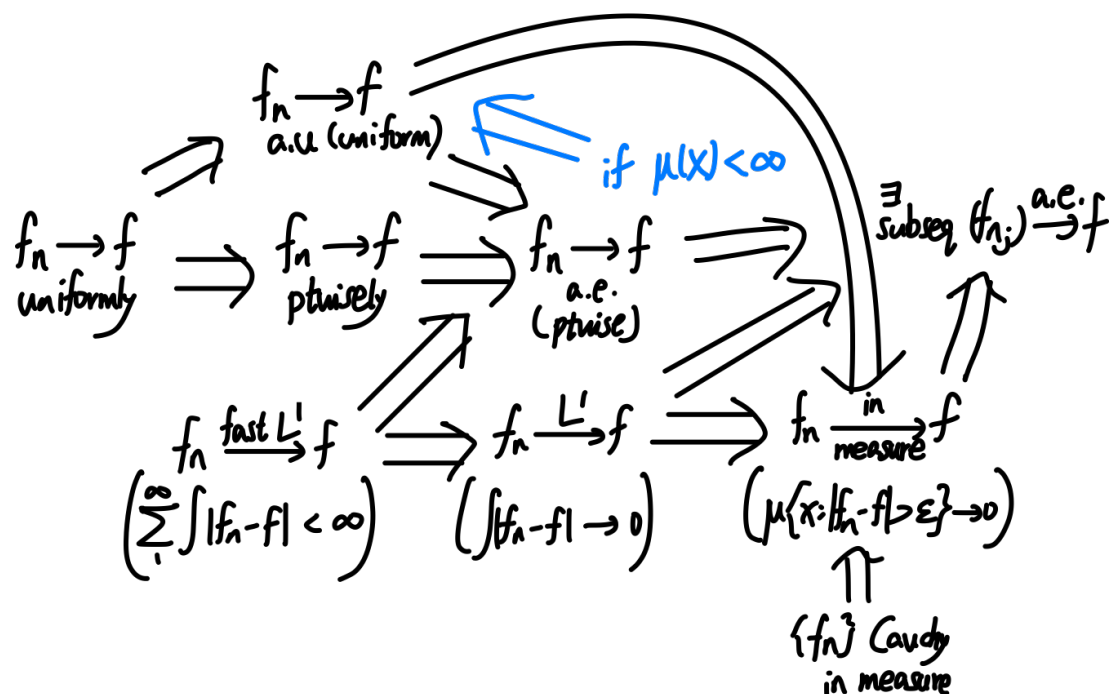 fn → f
a.u (uniform)
if μ(X) < ∞
∃
subseq (fnj) a.e.→ f
fn → f
uniformly
fn → f
ptwisely
fn → f
a.e.
(ptwise)
fn fast L¹→ f
(∑₁^∞ ∫|fn-f| < ∞)
fn L¹→ f
(∫|fn-f| → 0)
fn in measure→ f
(μ{x:|fn-f|>ε}→0)
{fn} Cauchy
in measure